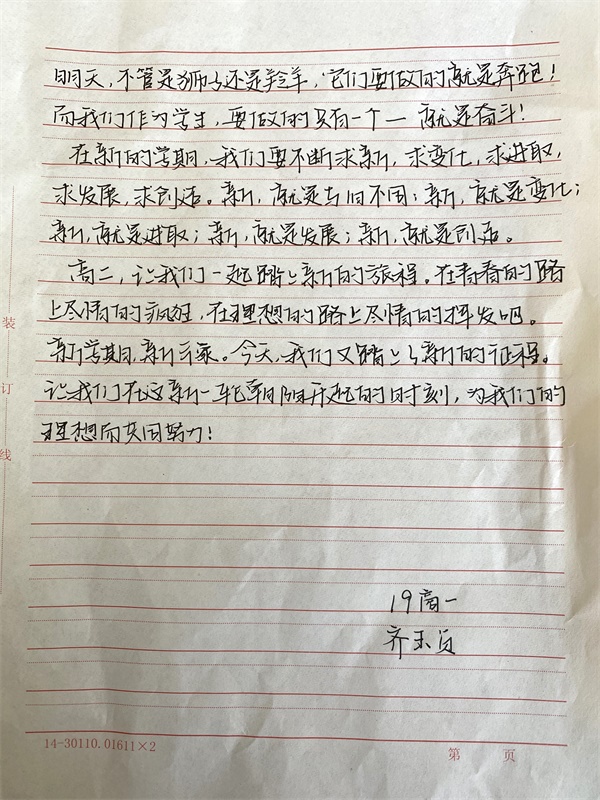 明天，不管是狮子还是羚羊，它们要做的就是奔跑！
而我们作为学生，要做的只有一个一 就是奋斗！
在新的学期，我们要不断求新，求变化，求进取，
求发展，求创造。新，就是与旧不同；新，就是变化；
新，就是进取；新，就是发展；新，就是创造。
高二，让我们一起踏上新的旅程。在青春的路
上尽情的疯狂，在理想的路上尽情的挥发吧。
新学期，新气象。今天，我们又踏上了新的征程。
让我们在这新一轮朝阳升起的时刻，为我们的
理想而共同努力！
19高一
齐玉
装
订
线
14-30110.01611×2
第 页